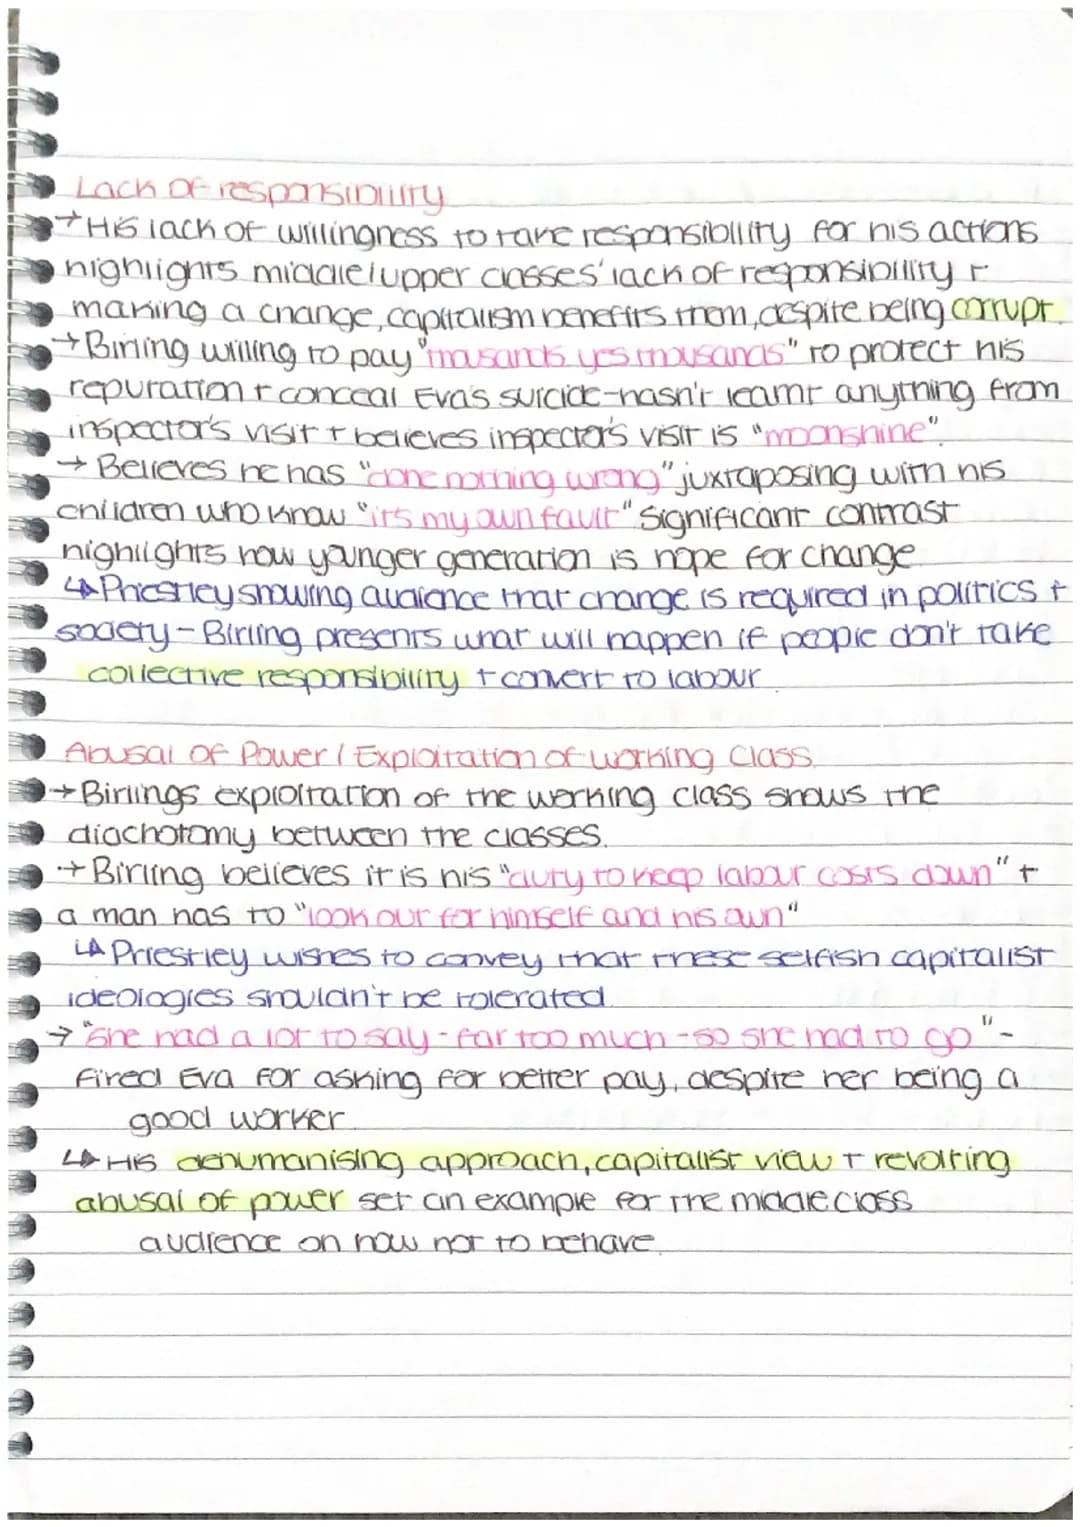 Lack of responsibility
→ His lack of willingness to take responsibility for his actions
highlights middle/upper classes' lack of responsibility +
making a change, capitalism benefits them, despite being corrupt
→ Birling willing to pay "thousands yes thousands" to protect his
reputation + conceal Eva's suicide - hasn't learnt anything from
inspector's visit + believes inspector's visit is "moonshine".
→ Believes he has "done nothing wrong" juxtaposing with his
children who know "it's my own fault" Significant contrast
highlights how younger generation is hope for change
↳ Priestley showing audience that change is required in politics +
society - Birling presents what will happen if people don't take
collective responsibility + convert to labour
Abusal of Power / Exploitation of working Class.
→ Birlings exploitation of the working class shows the
diachotomy between the classes.
→ Birling believes it is his "duty to keep labour costs down" +
a man has to "look out for himself and his own"
↳ Priestley wishes to convey that these selfish capitalist
ideologies shouldn't be tolerated
→ "She had a lot to say - far too much - so she had to go" -
fired Eva for asking for better pay, despite her being a
good worker
↳ His dehumanising approach, capitalist view + revolting
abusal of power set an example for the middle class
audience on how not to behave.